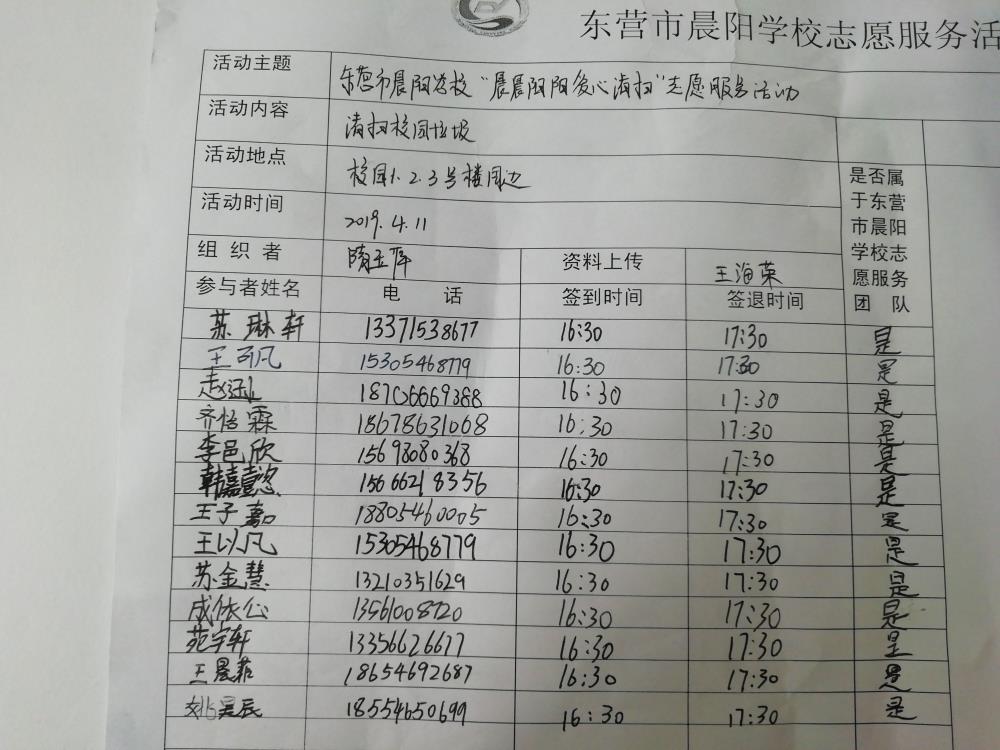 东营市晨阳学校志愿服务活
活动主题 东营市晨阳学校“晨晨阳阳爱心清扫”志愿服务活动
活动内容 清扫校园垃圾
活动地点 校园1.2.3号楼周边
活动时间 2019.4.11
组 织 者 隋玉萍 资料上传 王海荣
是否属于东营市晨阳学校志愿服务团 队
参与者姓名 电 话 签到时间 签退时间
苏琳轩 13371538677 16:30 17:30 是
王可凡 15305468779 16:30 17:30 是
赵 18706669388 16:30 17:30 是
齐恬霖 15678631068 16:30 17:30 是
李邑欣 15698080368 16:30 17:30 是
韩嘉懿 15666218356 16:30 17:30 是
王子嘉 18805460005 16:30 17:30 是
王以凡 15305468779 16:30 17:30 是
苏金慧 13210351629 16:30 17:30 是
成依心 13561008720 16:30 17:30 是
苑宇轩 13356626677 16:30 17:30 是
王晨菲 18654692687 16:30 17:30 是
姚昊辰 18554650699 16:30 17:30 是